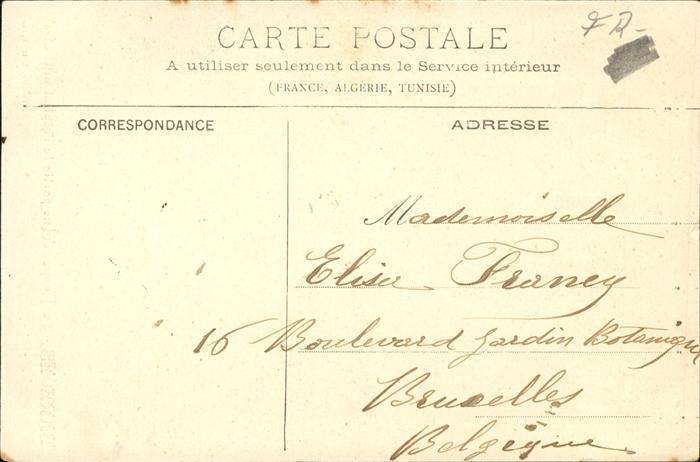 CARTE POSTALE
A utiliser seulement dans le Service intérieur
(FRANCE, ALGÉRIE, TUNISIE)
FR-
CORRESPONDANCE
ADRESSE
Mademoiselle
Elisa Franey
16 Boulevard Jardin Botanique
Bruxelles
Belgique